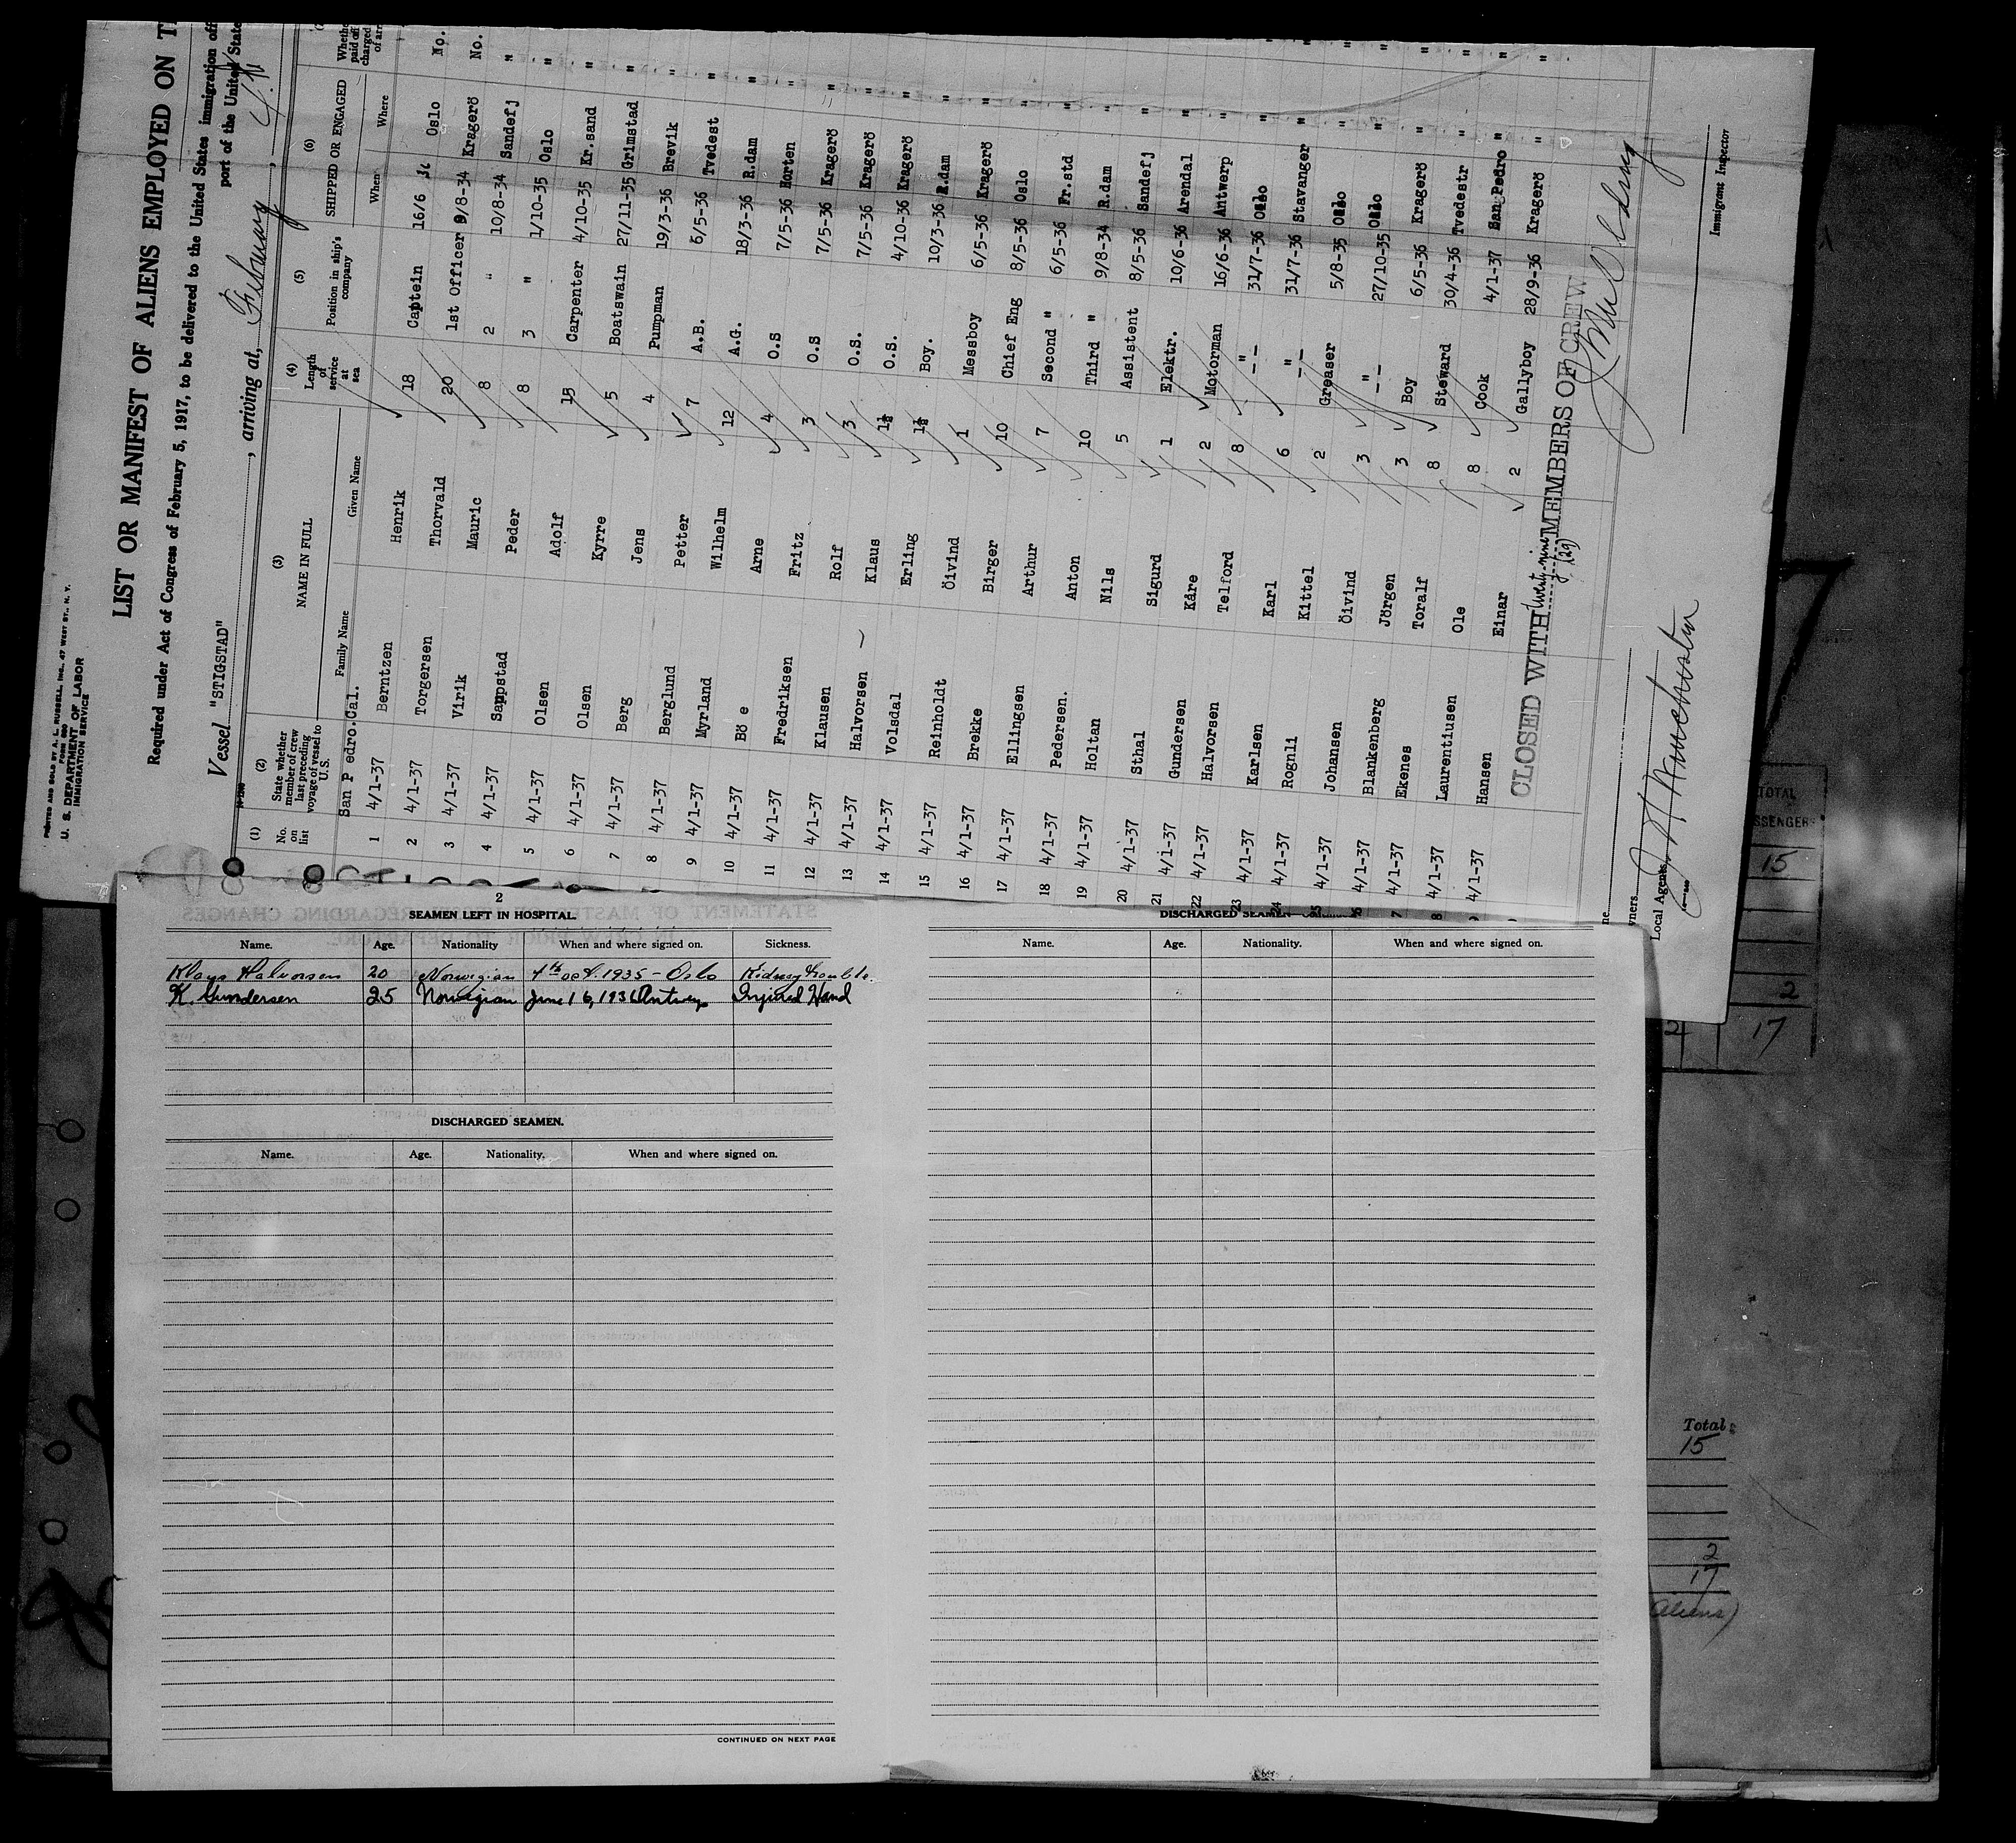 PRINTED AND SOLD BY A. L. RUSSELL, INC., 47 WEST ST., N. Y.
FORM 680
U. S. DEPARTMENT OF LABOR
IMMIGRATION SERVICE
LIST OR MANIFEST OF ALIENS EMPLOYED ON T
Required under Act of Congress of February 5, 1917, to be delivered to the United States immigration off
port of the United State
Vessel "STIGSTAD" , arriving at, February 4 ,
(1) No. on list
(2) State whether member of crew last preceding voyage of vessel to U.S.
(3) NAME IN FULL Family Name Given Name
(4) Length of service at sea
(5) Position in ship's company
(6) SHIPPED OR ENGAGED When Where
San P edro.Cal.
1 4/1-37 Berntzen Henrik 18 Captein 16/6 36 Oslo No.
2 4/1-37 Torgersen Thorvald 20 1st Officer 9/8-34 Kragerö No.
3 4/1-37 Virik Mauric 8 2 " 10/8-34 Sandefj "
4 4/1-37 Sappstad Peder 8 3 " 1/10-35 Oslo "
5 4/1-37 Olsen Adolf 15 Carpenter 4/10-35 Kr.sand "
6 4/1-37 Olsen Kyrre 5 Boatswain 27/11-35 Grimstad "
7 4/1-37 Berg Jens 4 Pumpman 19/3-36 Brevik "
8 4/1-37 Berglund Petter 7 A.B. 6/5-36 Tvedest "
9 4/1-37 Myrland Wilhelm 12 A.G. 18/3-36 R.dam "
10 4/1-37 Bö e Arne 4 O.S 7/5-36 Horten "
11 4/1-37 Fredriksen Fritz 3 O.S 7/5-36 Kragerö "
12 4/1-37 Klausen Rolf 3 O.S. 7/5-36 Kragerö "
13 4/1-37 Halvorsen Klaus 1½ O.S. 4/10-36 Kragerö "
14 4/1-37 Volsdal Erling 1½ Boy. 10/3-36 R.dam "
15 4/1-37 Reinholdt Öivind 1 Messboy 6/5-36 Kragerö "
16 4/1-37 Brekke Birger 10 Chief Eng 8/5-36 Oslo "
17 4/1-37 Ellingsen Arthur 7 Second " 6/5-36 Fr.std "
18 4/1-37 Pedersen. Anton 10 Third " 9/8-34 R.dam "
19 4/1-37 Holtan Nils 5 Assistent 8/5-36 Sandefj "
20 4/1-37 Sthal Sigurd 1 Elektr. 10/6-36 Arendal "
21 4/1-37 Gundersen Kåre 2 Motorman 16/6-36 Antwerp "
22 4/1-37 Halvorsen Telford 8 -"- 31/7-36 Oslo "
23 4/1-37 Karlsen Karl 6 -"- 31/7-36 Stavanger "
24 4/1-37 Rognli Kittel 2 Greaser 5/8-35 Oslo "
25 4/1-37 Johansen Öivind 3 -"- 27/10-35 Oslo "
26 4/1-37 Blankenberg Jörgen 3 Boy 6/5-36 Kragerö "
7 4/1-37 Ekenes Toralf 8 Steward 30/4-36 Tvedestr "
8 4/1-37 Laurentiusen Ole 8 Cook 4/1-37 San Pedro "
4/1-37 Hansen Einar 2 Gallyboy 28/9-36 Kragerö "
CLOSED WITH twenty-nine MEMBERS OF CREW
(29)
Immigrant Inspector
Local Agents
2
SEAMEN LEFT IN HOSPITAL.
Name. Age. Nationality When and where signed on. Sickness.
Klaus Halvorsen 20 Norwegian 4th oct. 1935 - Oslo Kidney trouble.
K. Gundersen 25 Norwegian June 16, 1936 Antwerp Injured Hand
DISCHARGED SEAMEN.
Name. Age. Nationality. When and where signed on.
CONTINUED ON NEXT PAGE
DISCHARGED SEAMEN—
Name. Age. Nationality. When and where signed on.
TOTAL
SSENGERS
15
2
2 17
Total
15
2
17
(aliens)